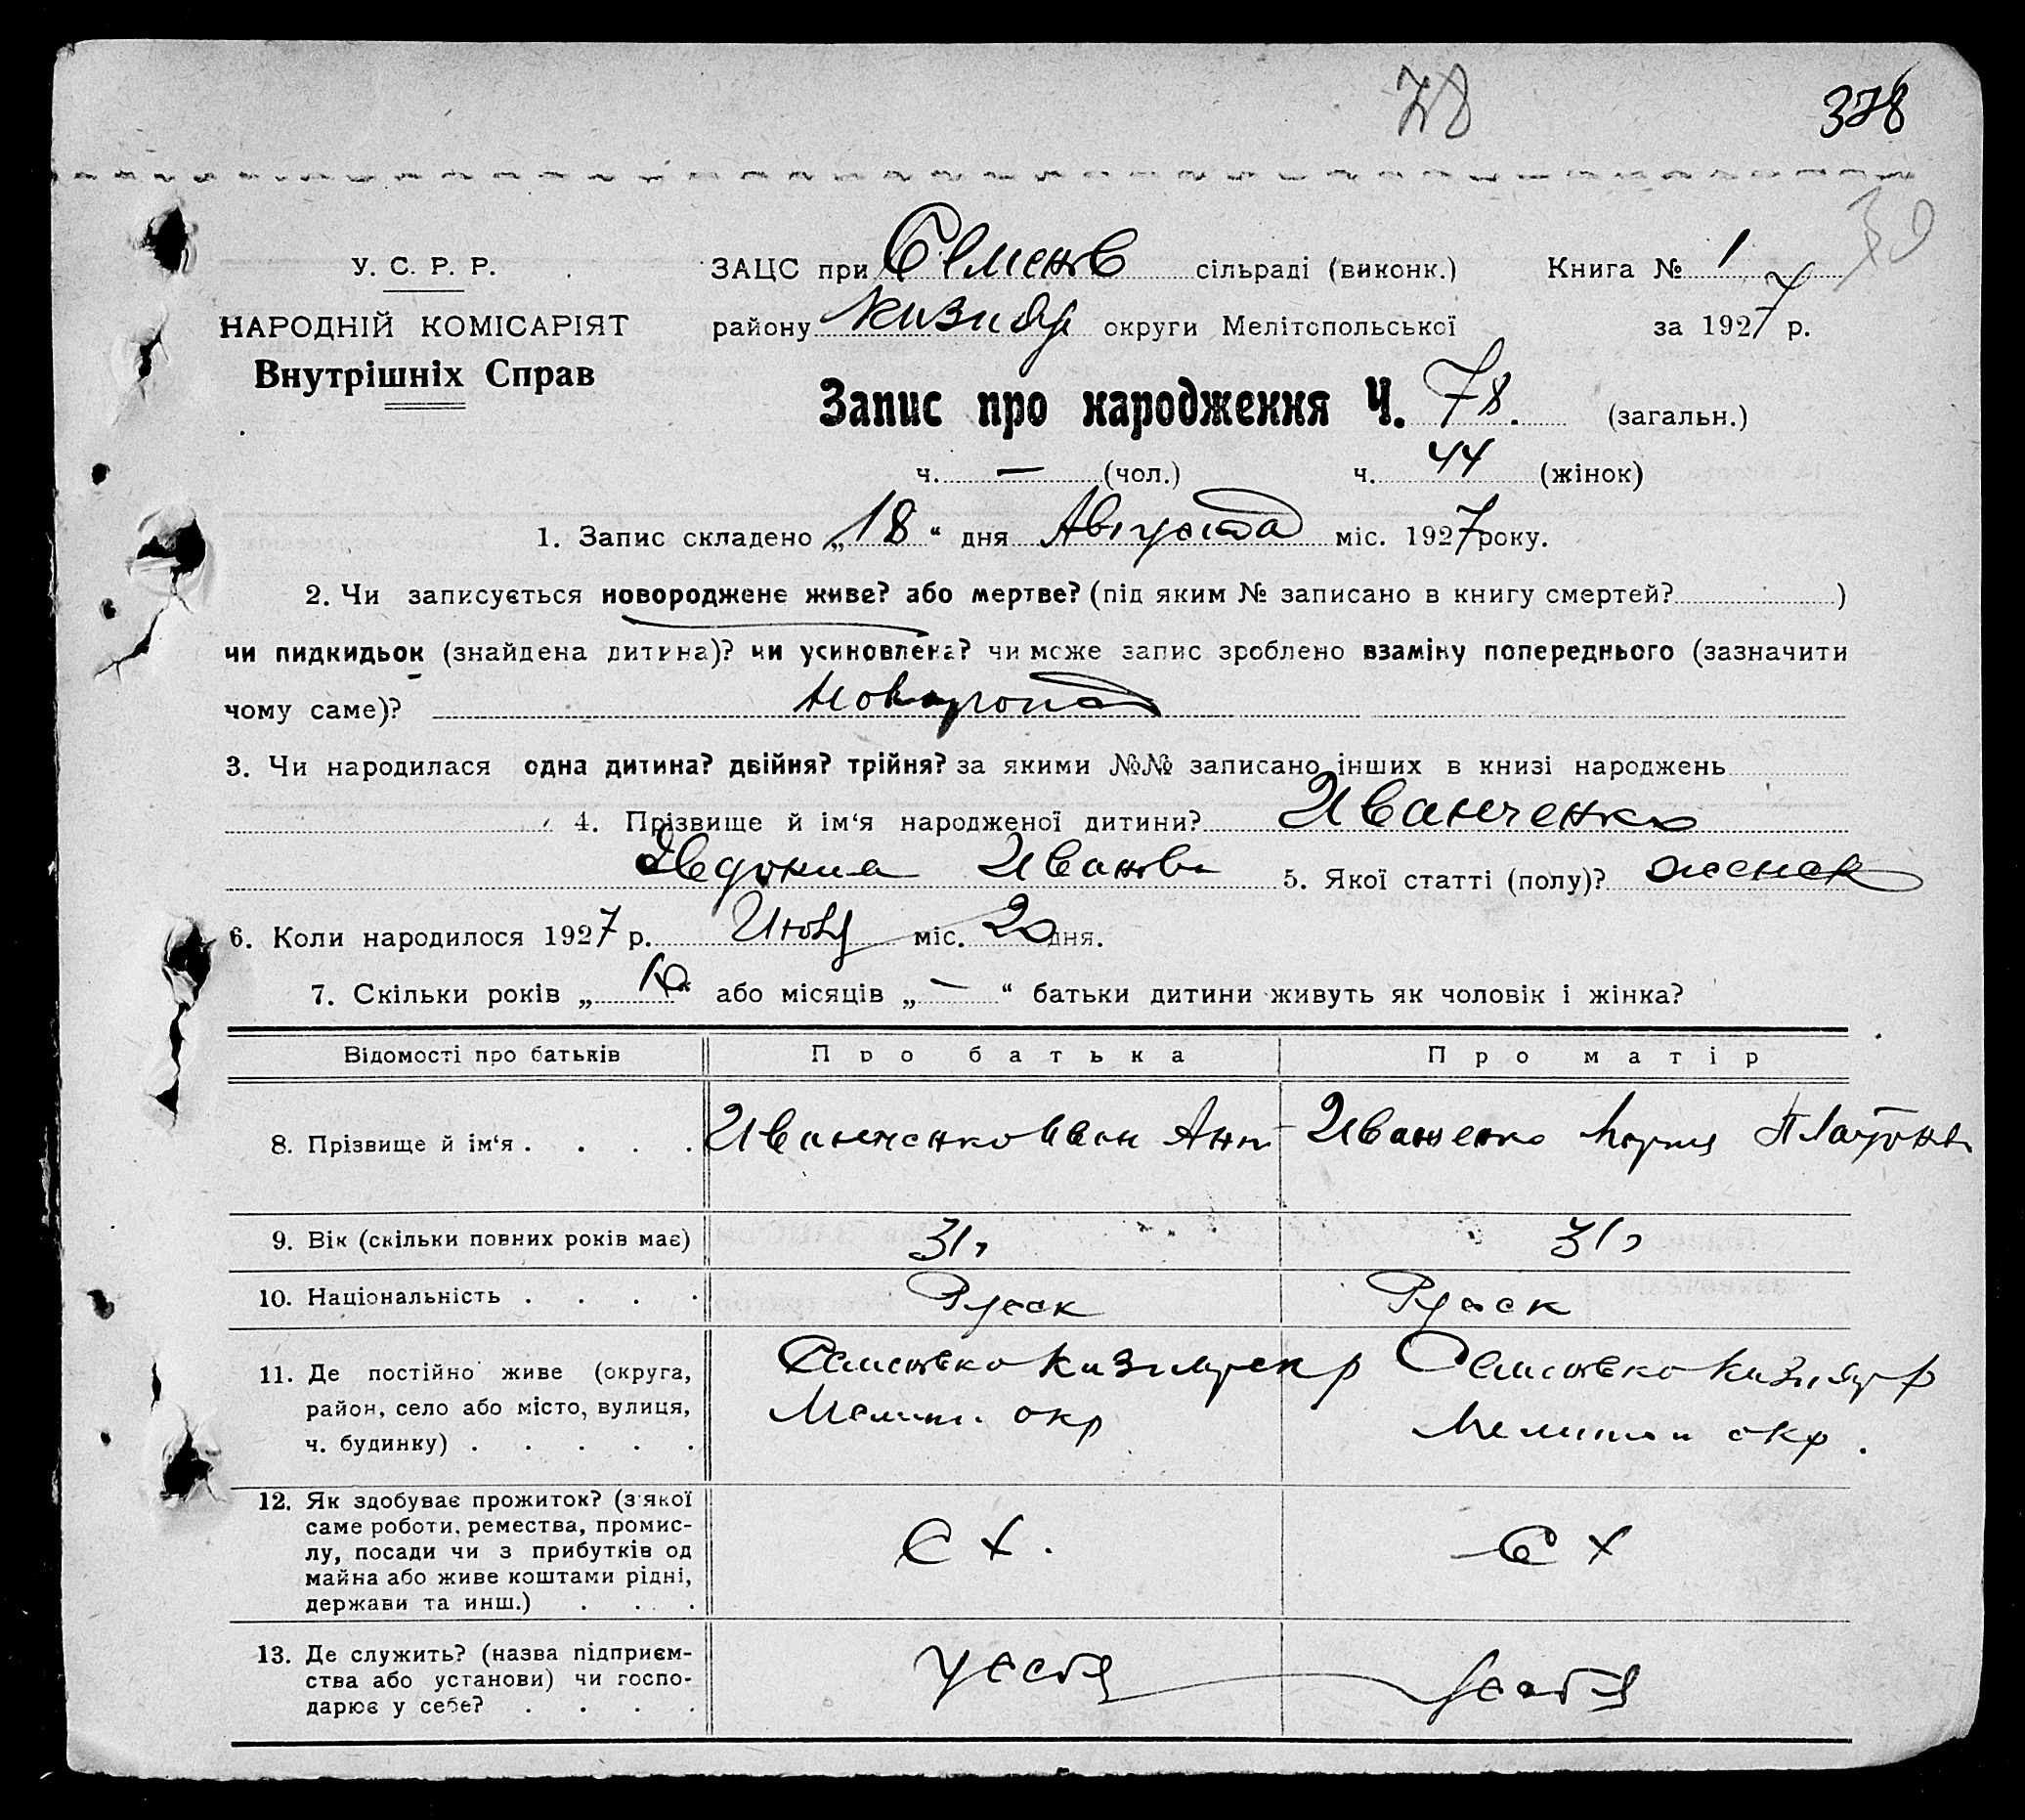 78 378
30
У. С. Р. Р. ЗАЦС при Семенов сільраді (виконк.) Книга № 1
НАРОДНІЙ КОМІСАРІЯТ району Кизияр округи Мелітопольської за 1927 р.
Внутрішніх Справ
Запис про народження Ч. 78. (загальн.)
ч. — (чол.) ч. 44 (жінок)
1. Запис складено „18“ дня Августа міс. 1927 року.
2. Чи записується новороджене живе? або мертве? (під яким № записано в книгу смертей? )
чи пидкидьок (знайдена дитина)? чи усиновлена? чи може запис зроблено взаміну попереднього (зазначити
чому саме)?
3. Чи народилася одна дитина? двійня? трійня? за якими №№ записано інших в книзі народжень
4. Прізвище й ім‘я народженої дитини? Иванченко
Евдокия Иванов 5. Якої статті (полу)? женск
6. Коли народилося 1927 р. Июля міс. 20 дня.
7. Скільки років „10“ або місяців „—“ батьки дитини живуть як чоловік і жінка?
Відомості про батьків Про батька Про матір
8. Прізвище й ім‘я . . . . Иванченко Иван Ант Иванченко Мария Платонов
9. Вік (скільки повних років має) 31, 31,
10. Національність . . . . Русск Русск
11. Де постійно живе (округа, Семеновко Кизиярск р Семеновко Кизияр р
район, село або місто, вулиця, Мелит. окр Мелитоп окр.
ч. будинку) . . . . .
12. Як здобуває прожиток? (з якої
саме роботи, ремества, промис-
лу, посади чи з прибутків од С Х. С Х
майна або живе коштами рідні,
держави та инш.) . . .
13. Де служить? (назва підприєм-
ства або установи) чи госпо- у себя у себя
дарює у себе? . . . .